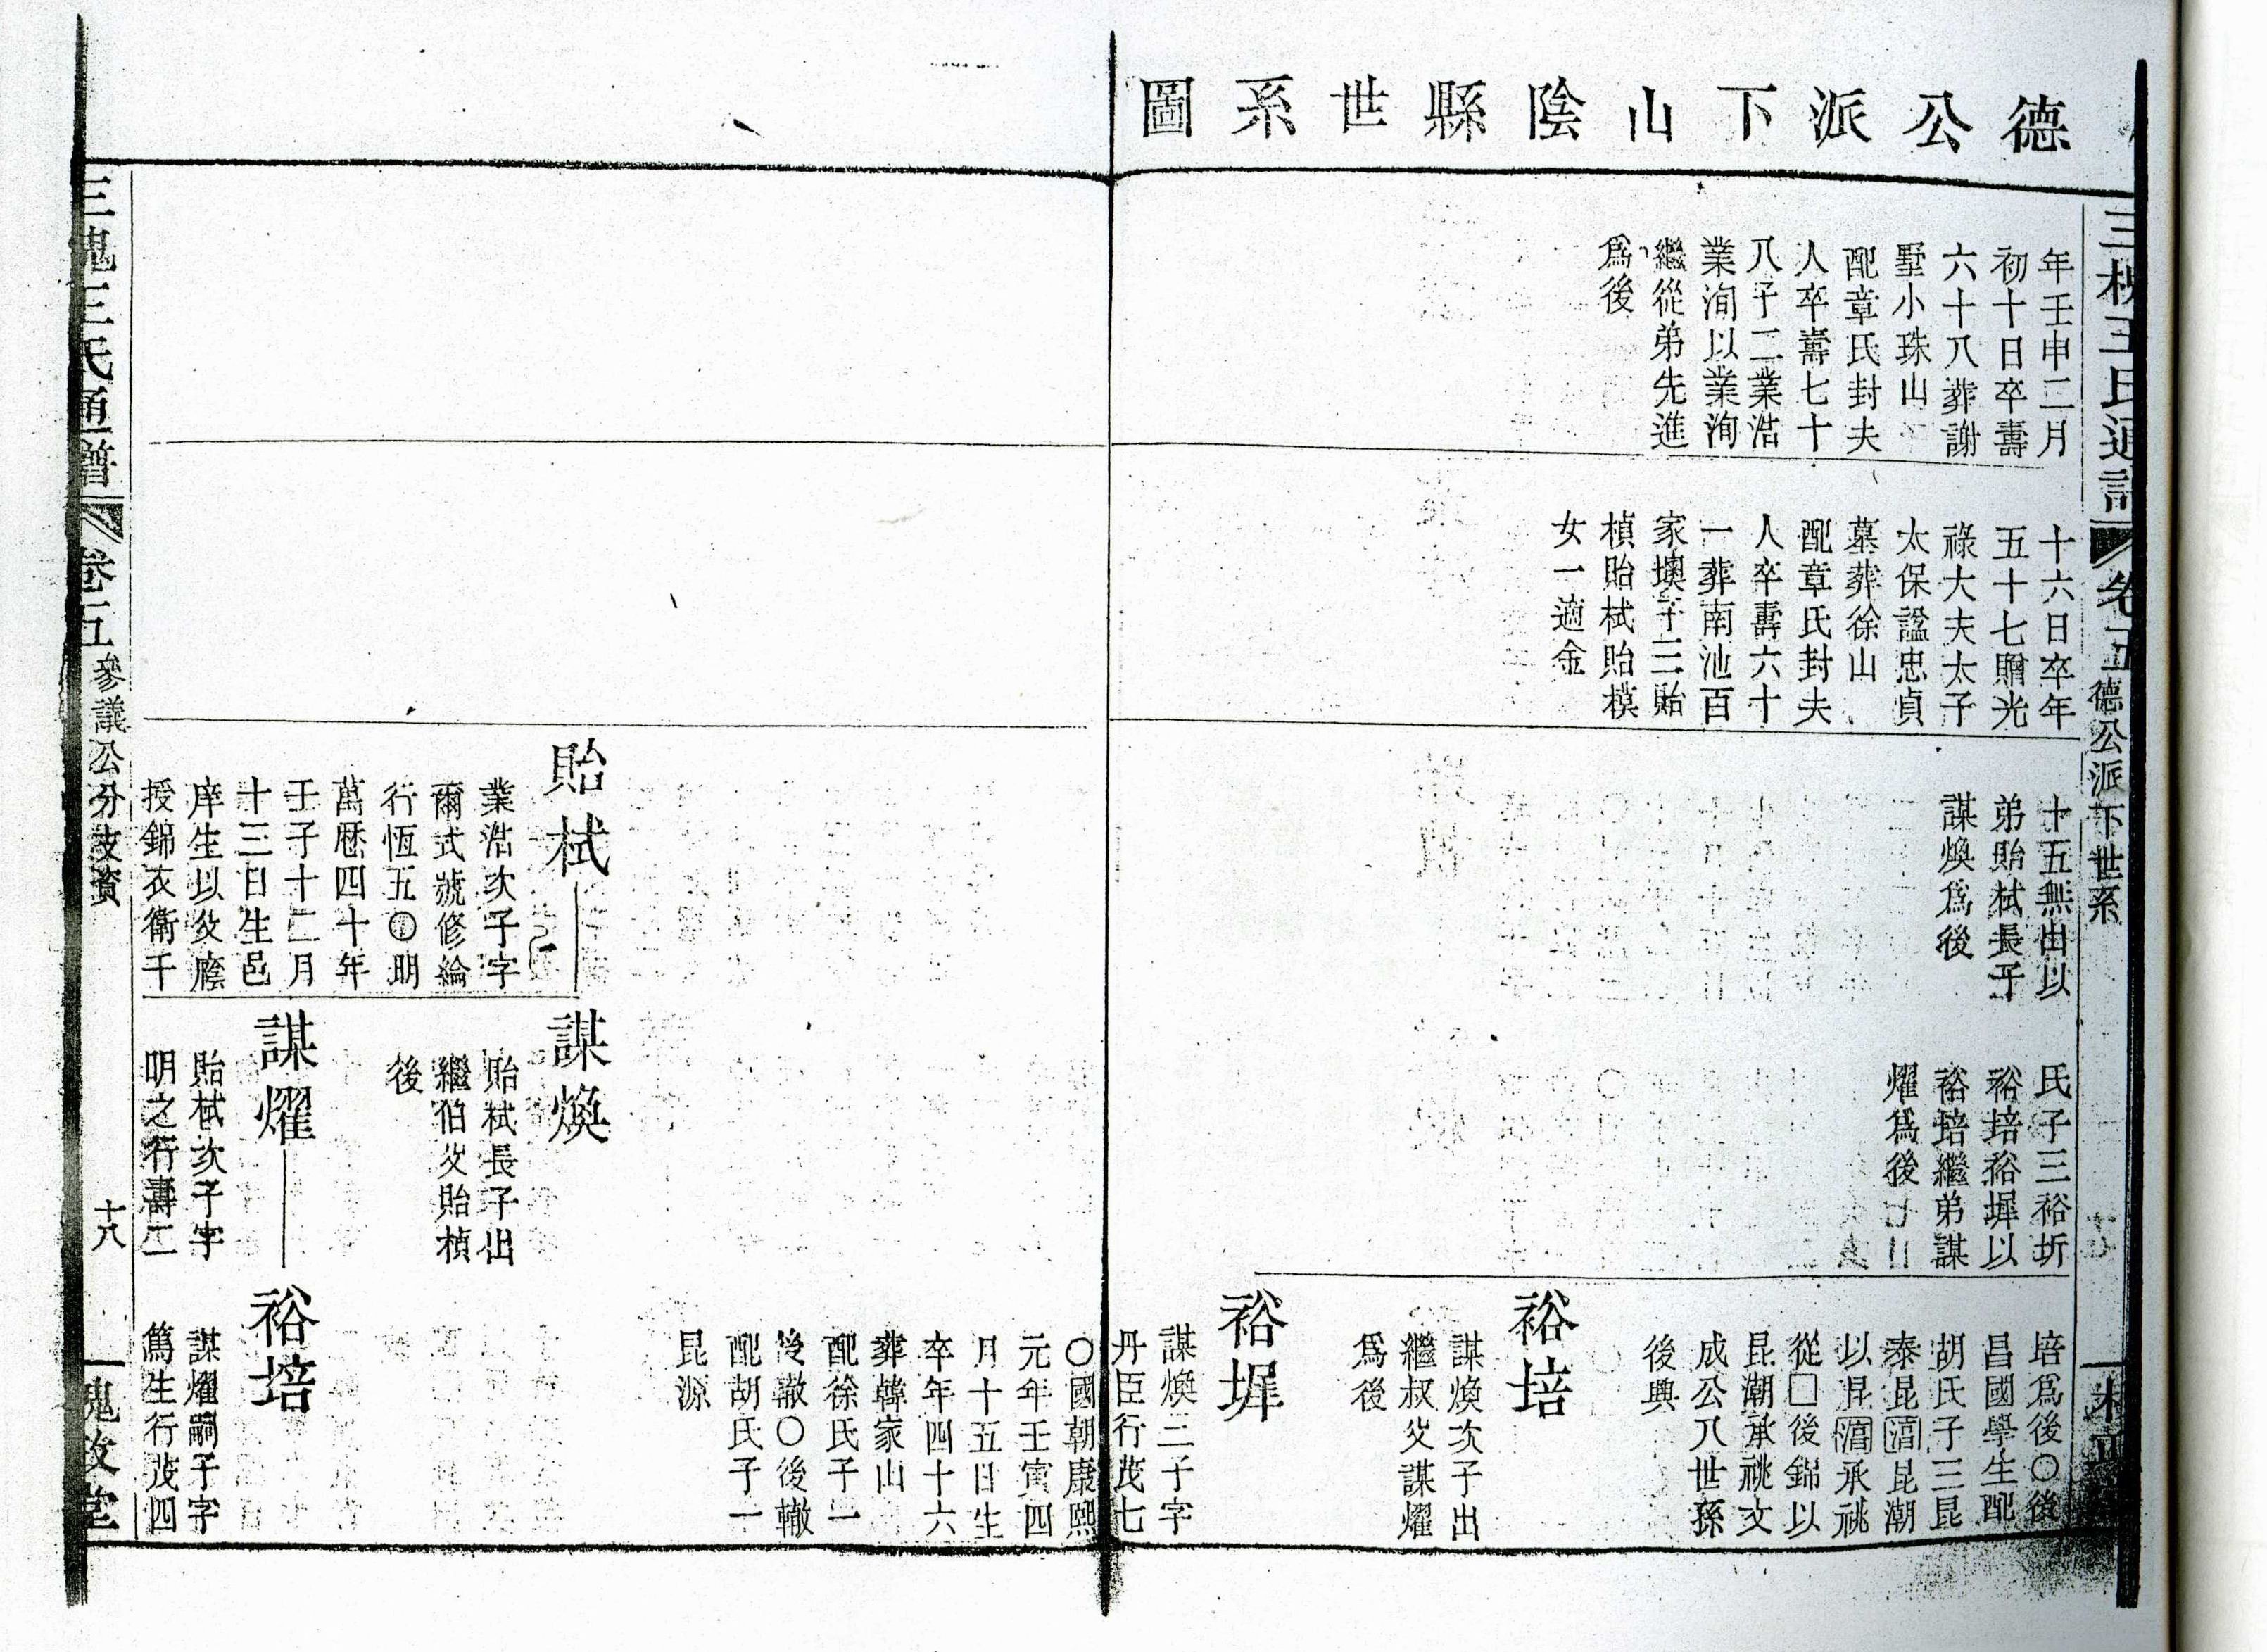 德公派下山陰縣世系圖
三槐王氏通譜
卷五
德公派下世系
年壬申二月
初十日卒壽
六十八葬謝
墅小珠山
配章氏封夫
人卒壽七十
八子二業浩
業洵以業洵
繼從弟先進
爲後
十六日卒年
五十七贈光
祿大夫太子
太保諡忠貞
墓葬徐山
配章氏封夫
人卒壽六十
一葬南池百
家墺子三貽
楨貽栻貽模
女一適金
十五無出以
弟貽栻長子
謀煥爲後
氏子三裕圻
裕培裕墀以
裕培繼弟謀
燿爲後
培爲後〇後
昌國學生配
胡氏子三昆
泰昆湣昆潮
以昆湣承祧
從□後錦以
昆潮承祧文
成公八世孫
後興
裕培
謀煥次子出
繼叔父謀燿
爲後
裕墀
謀煥三子字
丹臣行茂七
〇國朝康熙
元年壬寅四
月十五日生
卒年四十六
葬韓家山
配徐氏子一
後轍〇後轍
配胡氏子一
昆源
貽栻
業浩次子字
爾式號修綸
行恆五〇明
萬曆四十年
壬子十二月
十三日生邑
庠生以父廕
授錦衣衛千
謀煥
貽栻長子出
繼伯父貽楨
後
謀燿
貽栻次子字
明之行壽二
裕培
謀燿嗣子字
篤生行茂四
三槐王氏通譜
卷五
參議公分支資
十八
一槐政堂